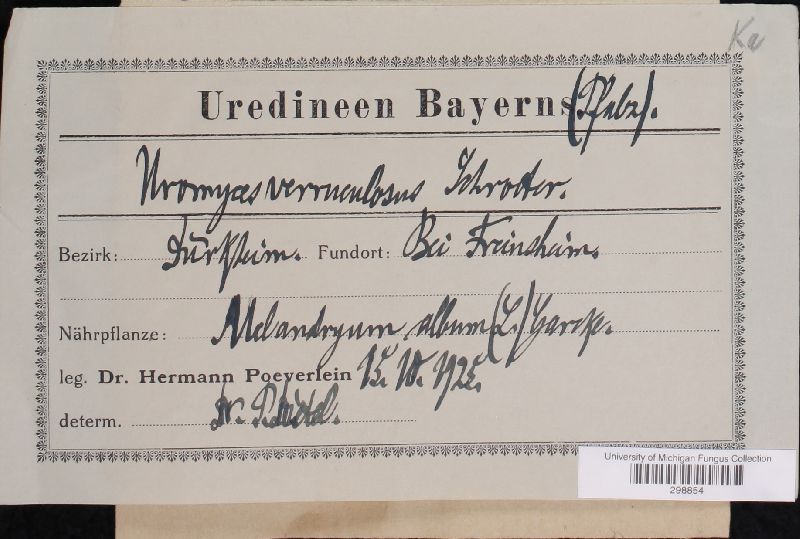 Ka
Uredineen Bayerns (Pfalz).
Uromyces verruculosus Schroeter.
Bezirk: Dürkheim. Fundort: Bei Freinsheim.
Nährpflanze: Melandryum album (L.) Garcke.
leg. Dr. Hermann Poeverlein 15. 10. 1925.
determ. Dr. P.
University of Michigan Fungus Collection
298854